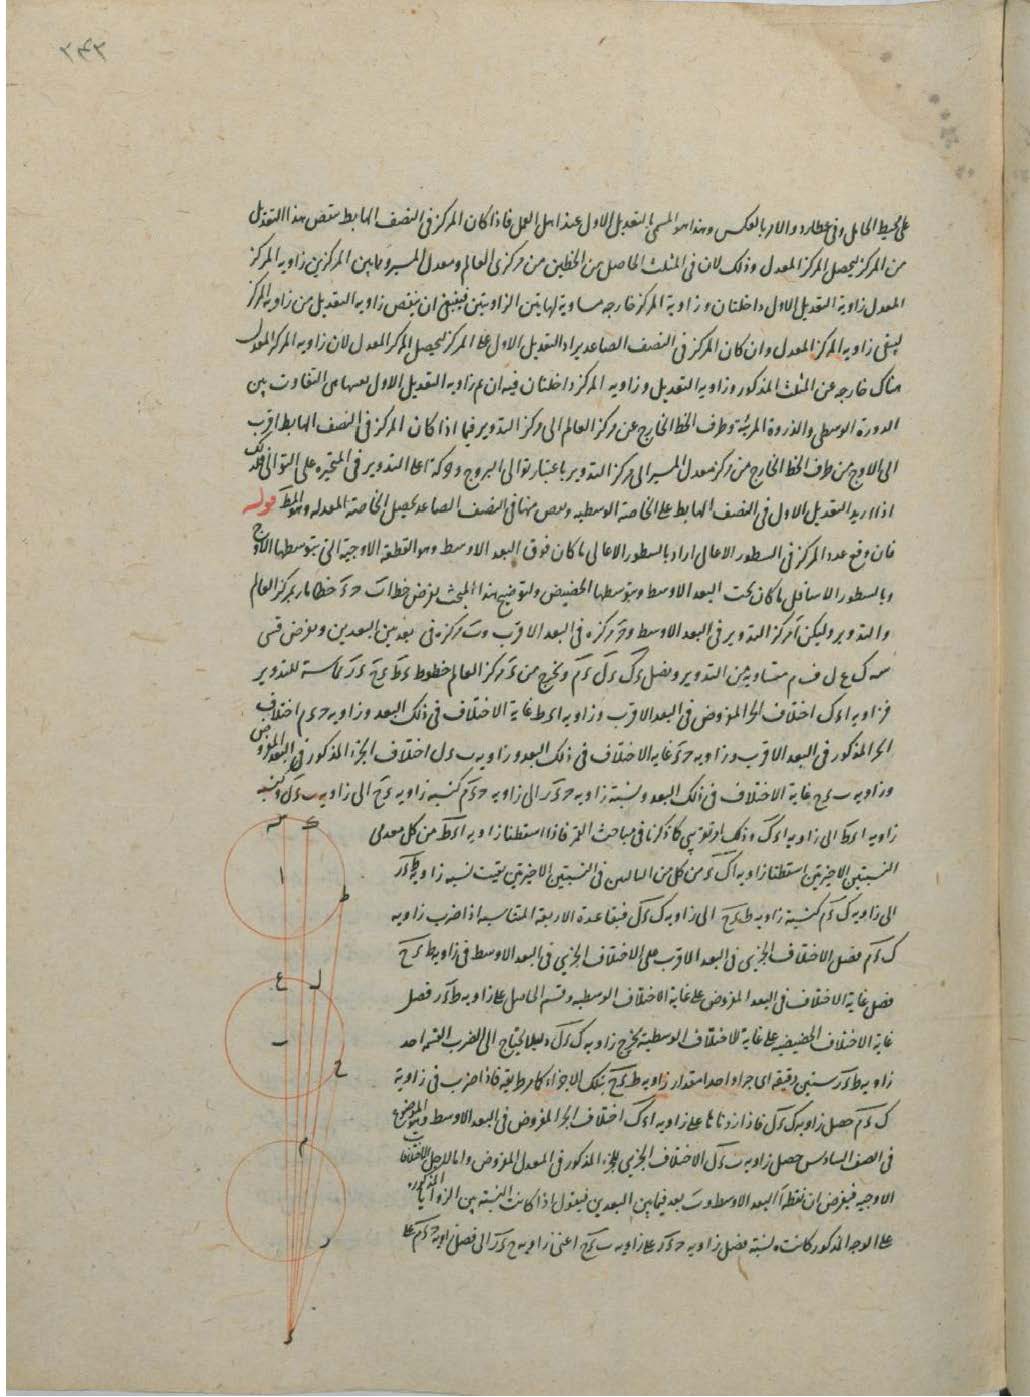 ۲۴۳
على محيط الحامل وفى عطارد والامر بالعكس وهذا هو المسمى بالتعديل الاول عند اهل العمل فاذا كان المركز فى النصف الهابط ينقص هذا التعديل
من المركز ليحصل المركز المعدل وذلك لان فى المثلث الحاصل من الخطين من مركزى العالم ومعدل المسير وما بين المركزين زاويه المركز
المعدل زاوية التعديل الاول داخلتان وزاوية المركز خارجه مساوية لهاتين الزاويتين فينبغى ان ينقص زاويه التعديل من زاويه المركز
ليبقى زاويه المركز المعدل وان كان المركز فى النصف الصاعد يزاد التعديل الاول على المركز ليحصل المركز المعدل لان زاويه المركز المعدل
هناك خارجه عن المثلث المذكور وزاويه التعديل وزاويه المركز داخلتان فيه ثم زاويه التعديل الاول بعينها هى التفاوت بين
الذروة الوسطى والذروة المرئية وطرف الخط الخارج عن مركز العالم الى مركز التدوير فيما اذا كان المركز فى النصف الهابط اقرب
الى الاوج من طرف الخط الخارج من مركز معدل المسير الى مركز التدوير باعتبار توالى البروج وحركة اعلا التدوير فى المتحيره على التوالى فلذلك
اذا اريد التعديل الاول فى النصف الهابط على الخاصة الوسطيه ونقص منها فى النصف الصاعد يحصل الخاصة المعدله وهو المط قوله
فان وقع عدد المركز فى السطور الاعالى اراد بالسطور الاعالى ما كان فوق البعد الاوسط وهو القطعة الاوجية التى يتوسطها الاوج
وبالسطور الاسافل ما كان تحت البعد الاوسط ويتوسطها الحضيض ولتوضيح هذا المبحث نفرض خط ا ب ح ء خطا مارا بمركز العالم
والتدوير وليكن ا مركز التدوير فى البعد الاوسط و ح مركزه فى البعد الاقرب و ب مركزه فى بعد بين البعدين ونفرض قسى
سه ك ع ل ف م متساوية من التدوير ونصل ء ك ء ل ء م ونخرج من ء مركز العالم خطوط ء ط ء ح ء ر مماسة للتدوير
فزاويه ا ء ك اختلاف الجزء المفروض فى البعد الاقرب وزاويه ا ء ط غاية الاختلاف فى ذلك البعد وزاويه ح ء م اختلاف
الجزء المذكور فى البعد الاقرب وزاويه ح ء ر غايه الاختلاف فى ذلك البعد وزاويه ب ء ل اختلاف الجزء المذكور فى البعد المفروض
وزاويه ب ء ح غاية الاختلاف فى ذلك البعد ونسبة زاويه ح ء ر الى زاويه ح ء م كنسبه زاويه ب ء ح الى زاويه ب ء ل وكنسبه
زاويه ا ء ط الى زاويه ا ء ك وذلك امر تقريبى كما ذكرنا فى مباحث القمر فاذا اسقطنا زاويه ا ء ط من كل مقدمى
النسبتين الاخيرتين اسقطنا زاويه ا ء ك من كل من التاليين فى النسبتين الاخيرتين بقيت نسبه زاويه ط ء ر
الى زاويه ك ء م كنسبة زاويه ط ء ح الى زاويه ك ء ل فبقاعدة الاربعة المتناسبه اذا ضرب زاويه
ك ء م فضل الاختلاف الجزئى فى البعد الاقرب على الاختلاف الجزئى فى البعد الاوسط فى زاويه ط ء ح
فضل غاية الاختلاف فى البعد المفروض على غاية الاختلاف الوسطيه وقسم الحاصل على زاويه ط ء ر فضل
غاية الاختلاف الحضيضيه على غاية الاختلاف الوسطية يخرج زاويه ك ء ل ولئلا يحتاج الى الضرب القسمه اخذ
زاويه ط ء ر ستين دقيقه اى جزءا واحدا مقدار زاويه ط ء ح بتلك الاجزاء كما مر طريقه فاذا ضرب فى زاوية
ك ء م حصل زاويه ك ء ل فاذا زدناها على زاويه ا ء ك اختلاف الجزء المفروض فى البعد الاوسط وهو الموضوع
فى الصف السادس حصل زاويه ب ء ل الاختلاف الجزئى للجزء المذكور فى المعدل المفروض واما لاجل الاختلافات
الاوجيه فيفرض ان نقطة ا البعد الاوسط و ب بعد فيما بين البعدين فيقول اذا كانت النسبة بين الزوايا المذكوره
على الوجه المذكور كانت نسبة فضل زاويه ح ء ر على زاويه ب ء ح اعنى زاويه ح ء ر الى فضل زاويه ح ء م على
سه
ك
ا
ط
ع
ل
ب
ح
م
ر
ء